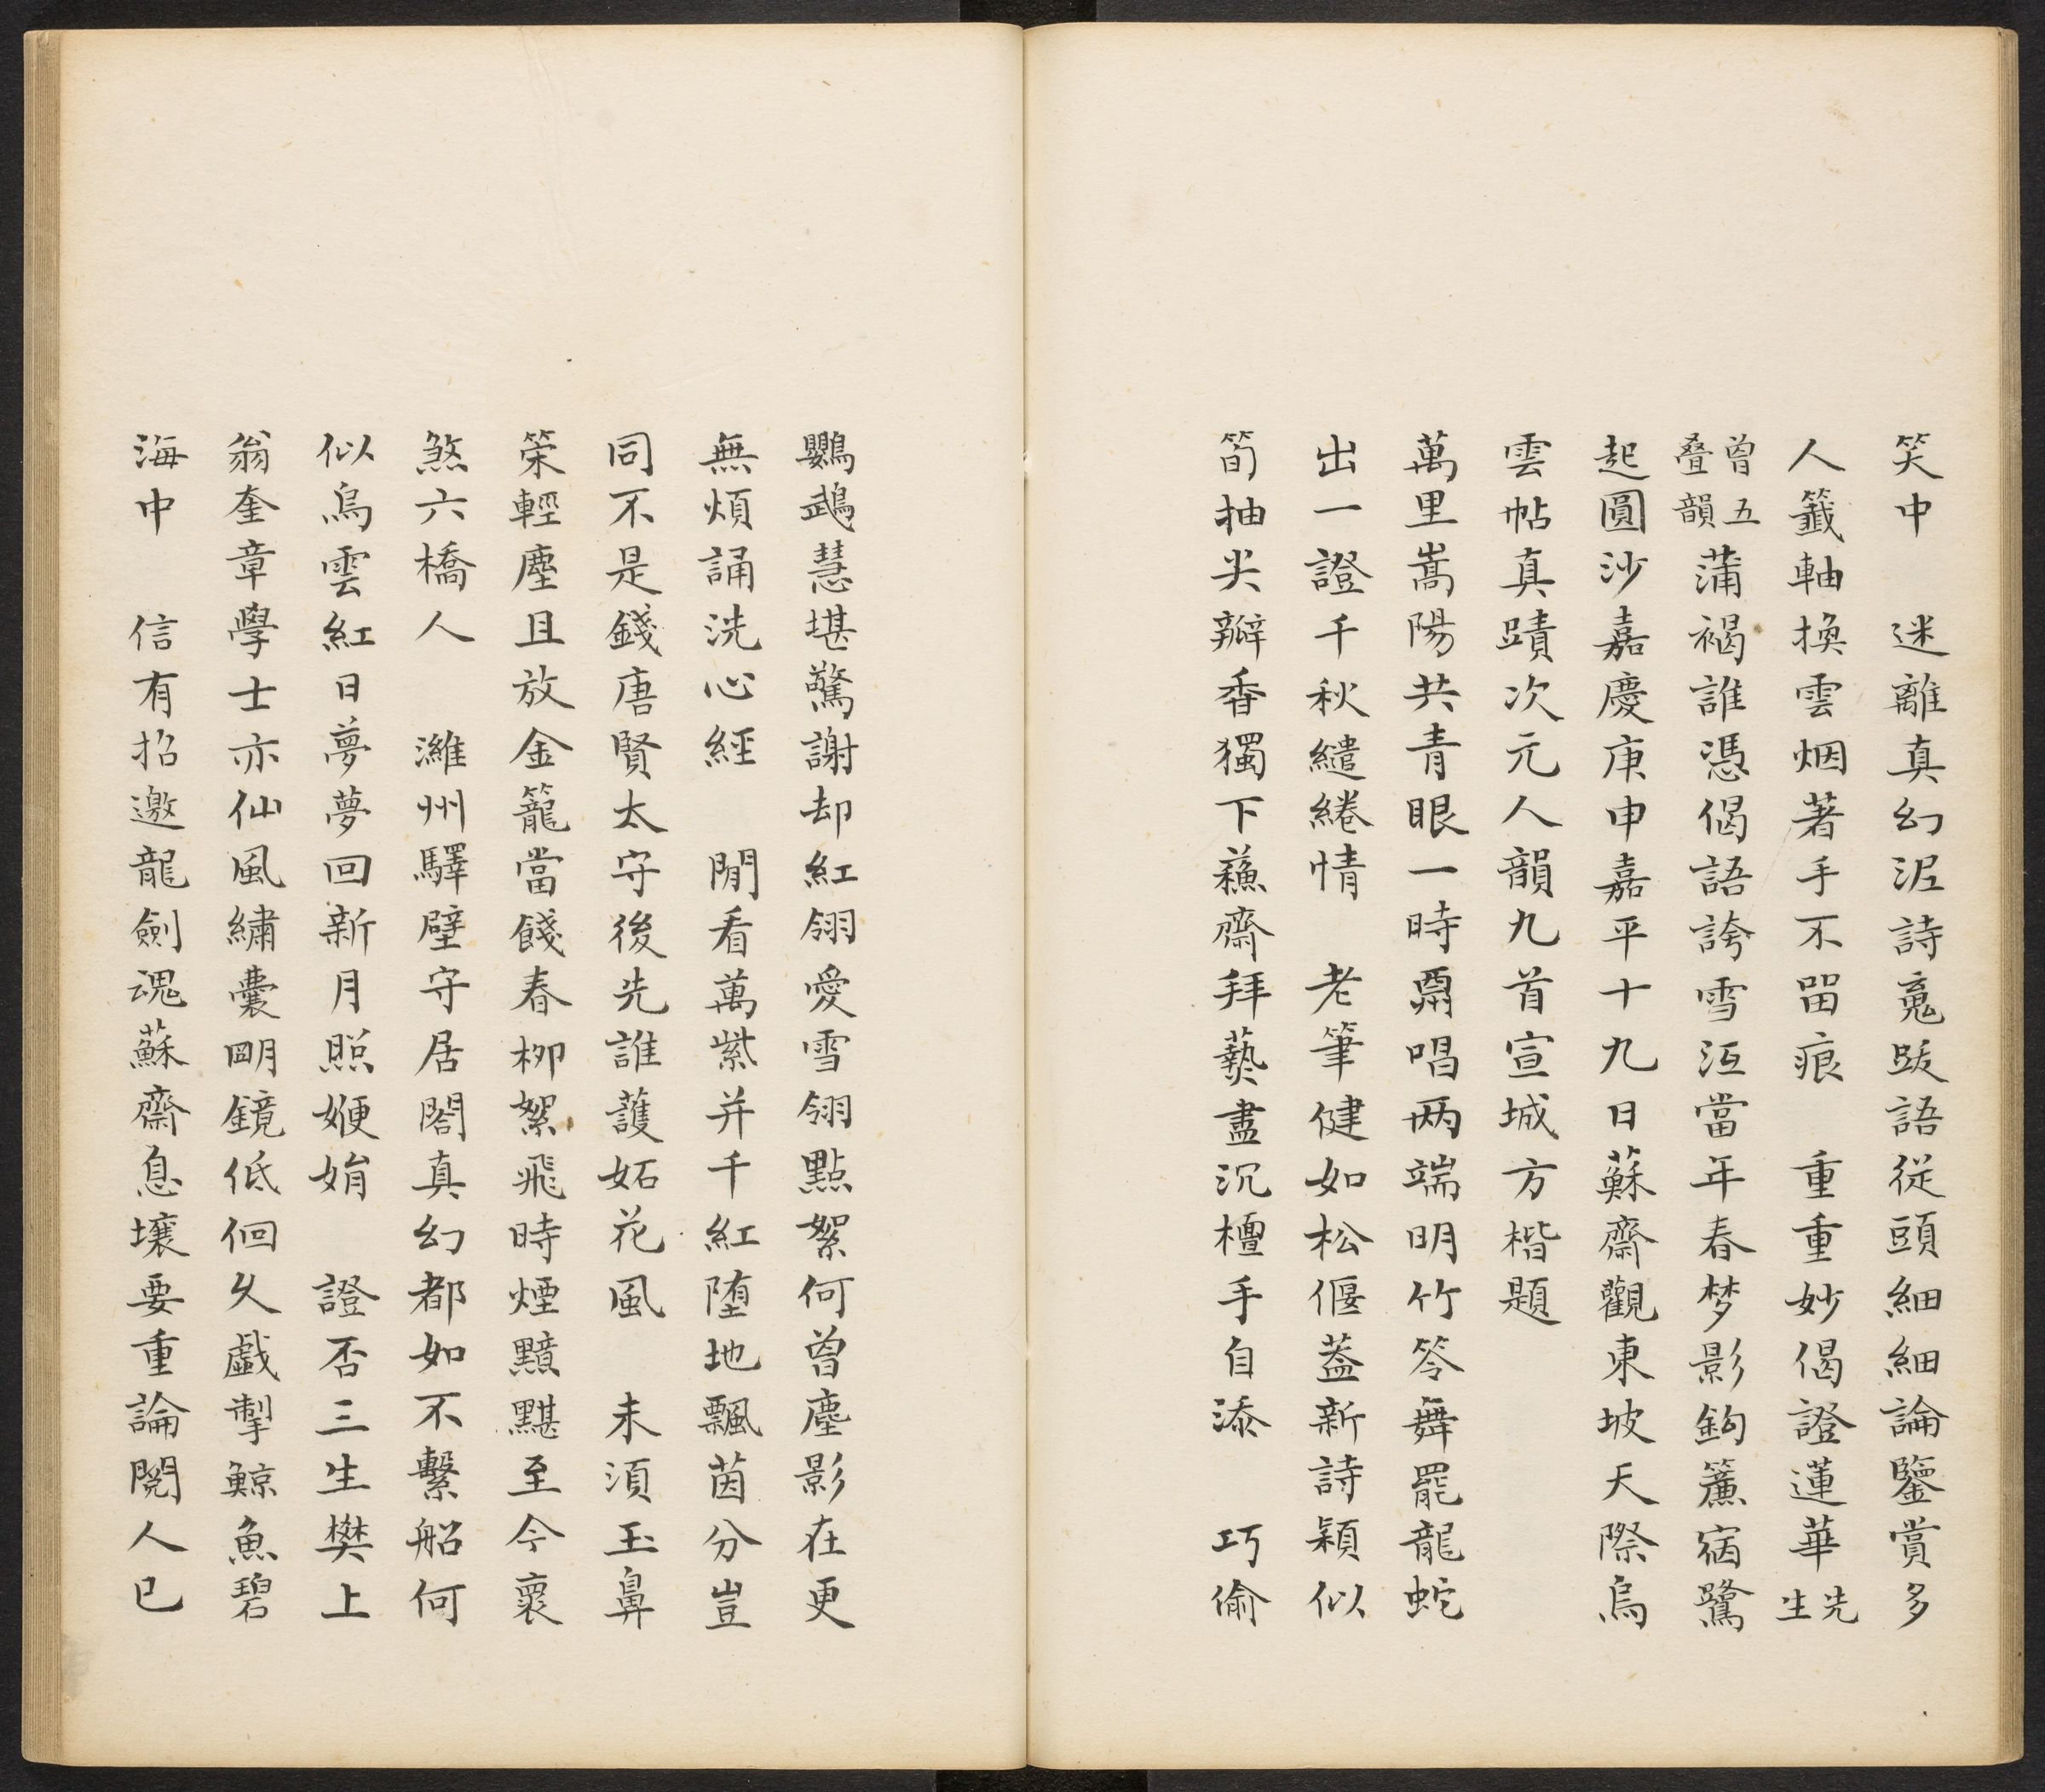 笑中　迷離真幻泥詩䰟跋語從頭細細論鑒賞多
人籤軸換雲烟著手不留痕　重重妙偈證蓮華先生
曾五叠韻蒲褐誰憑偈語誇雪泥當年春梦影鈎簾宿鷺
起圓沙嘉慶庚申嘉平十九日蘇齋觀東坡天際烏
雲帖真蹟次元人韻九首宣城方楷題
萬里嵩陽共青眼一時酬唱两端明竹笭舞罷龍蛇
出一證千秋繾綣情　老筆健如松偃蓋新詩穎似
筍抽尖瓣香獨下蘓齋拜爇盡沉檀手自添　巧偷
鸚鵡慧堪驚謝却紅翎愛雪翎點絮何曾塵影在更
無煩誦洗心經　閒看萬紫并千紅墮地飄茵分豈
同不是錢唐賢太守後先誰護妬花風　未湏玉鼻
策輕塵且放金籠當餞春柳絮飛時煙黯黮至今裹
煞六橋人　濰州驛壁守居閣真幻都如不繫船何
似烏雲紅日夢夢回新月照㛹娟　證否三生樊上
翁奎章學士亦仙風繡囊朙鏡低佪久戲掣鯨魚碧
海中　信有招邀龍劍魂蘇齋息壤要重論閱人已